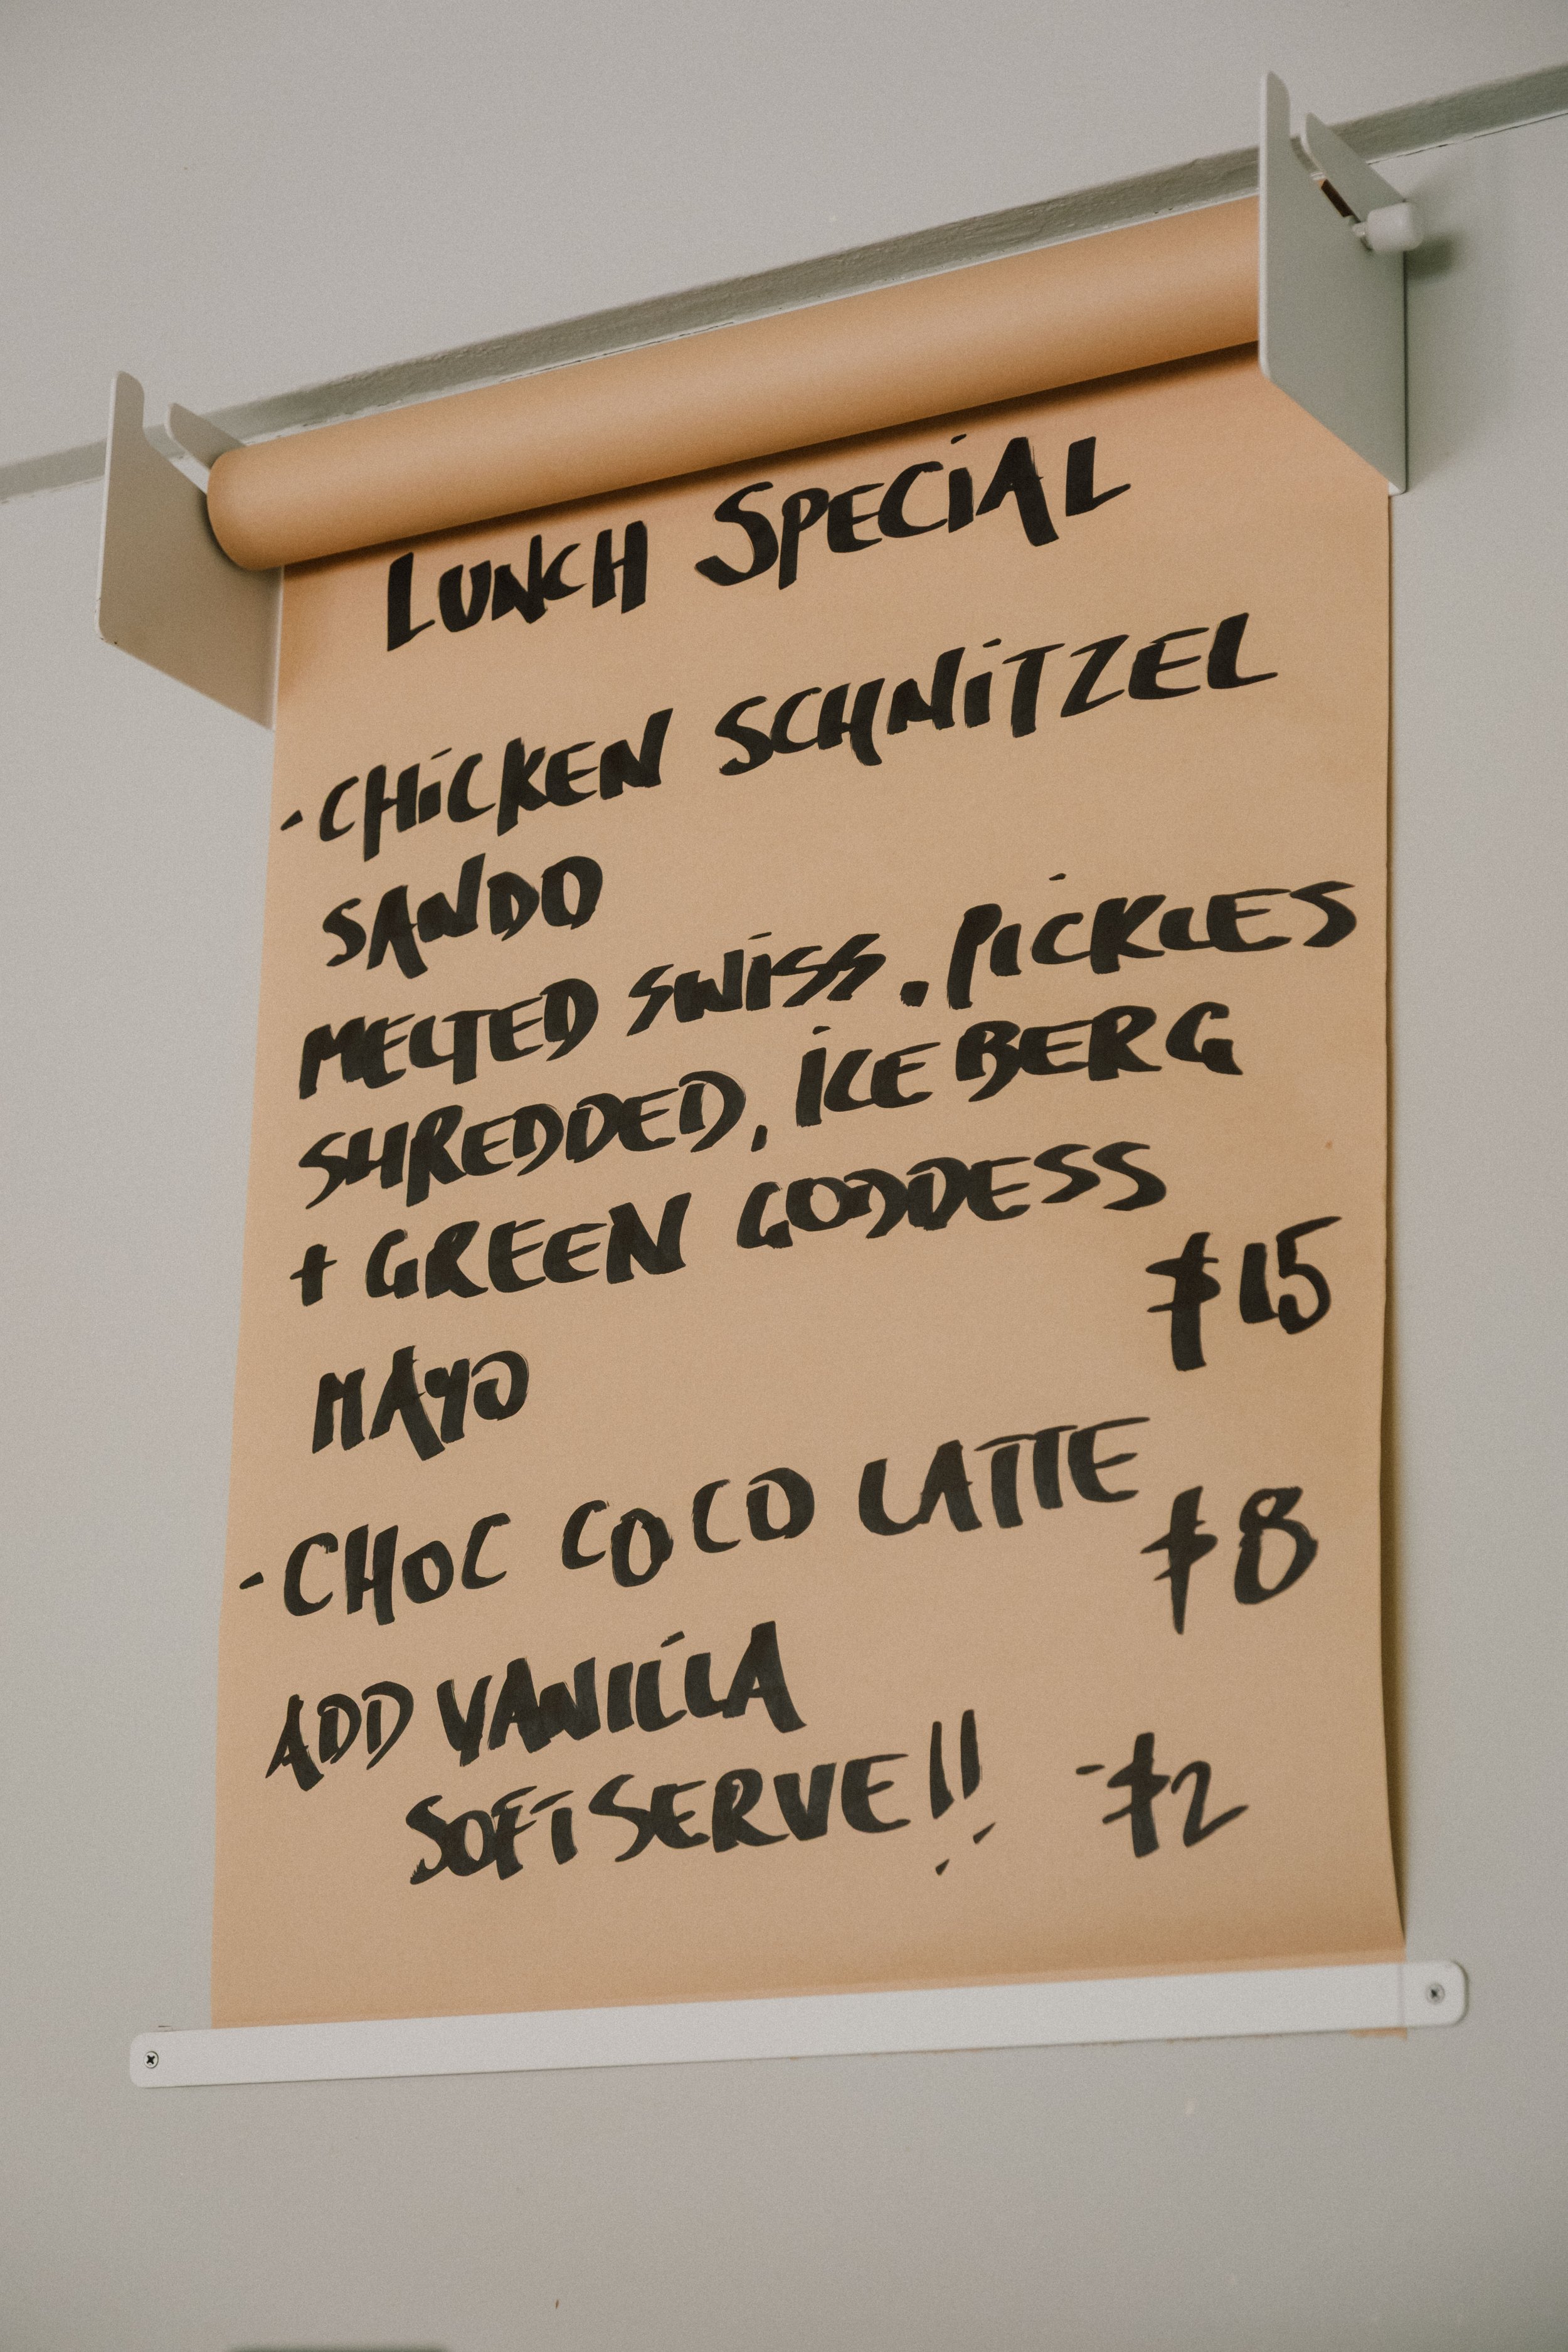 LUNCH SPECIAL
- CHiCKEN SCHNiTZEL
SANDO
MELTED SWiSS . PiCKLES
SHREDDED, iCE BERG
+ GREEN GODDESS
$15
MAYO
- CHOC COCO LATTE
$8
ADD VANiLLA
SOFT SERVE!! - $2